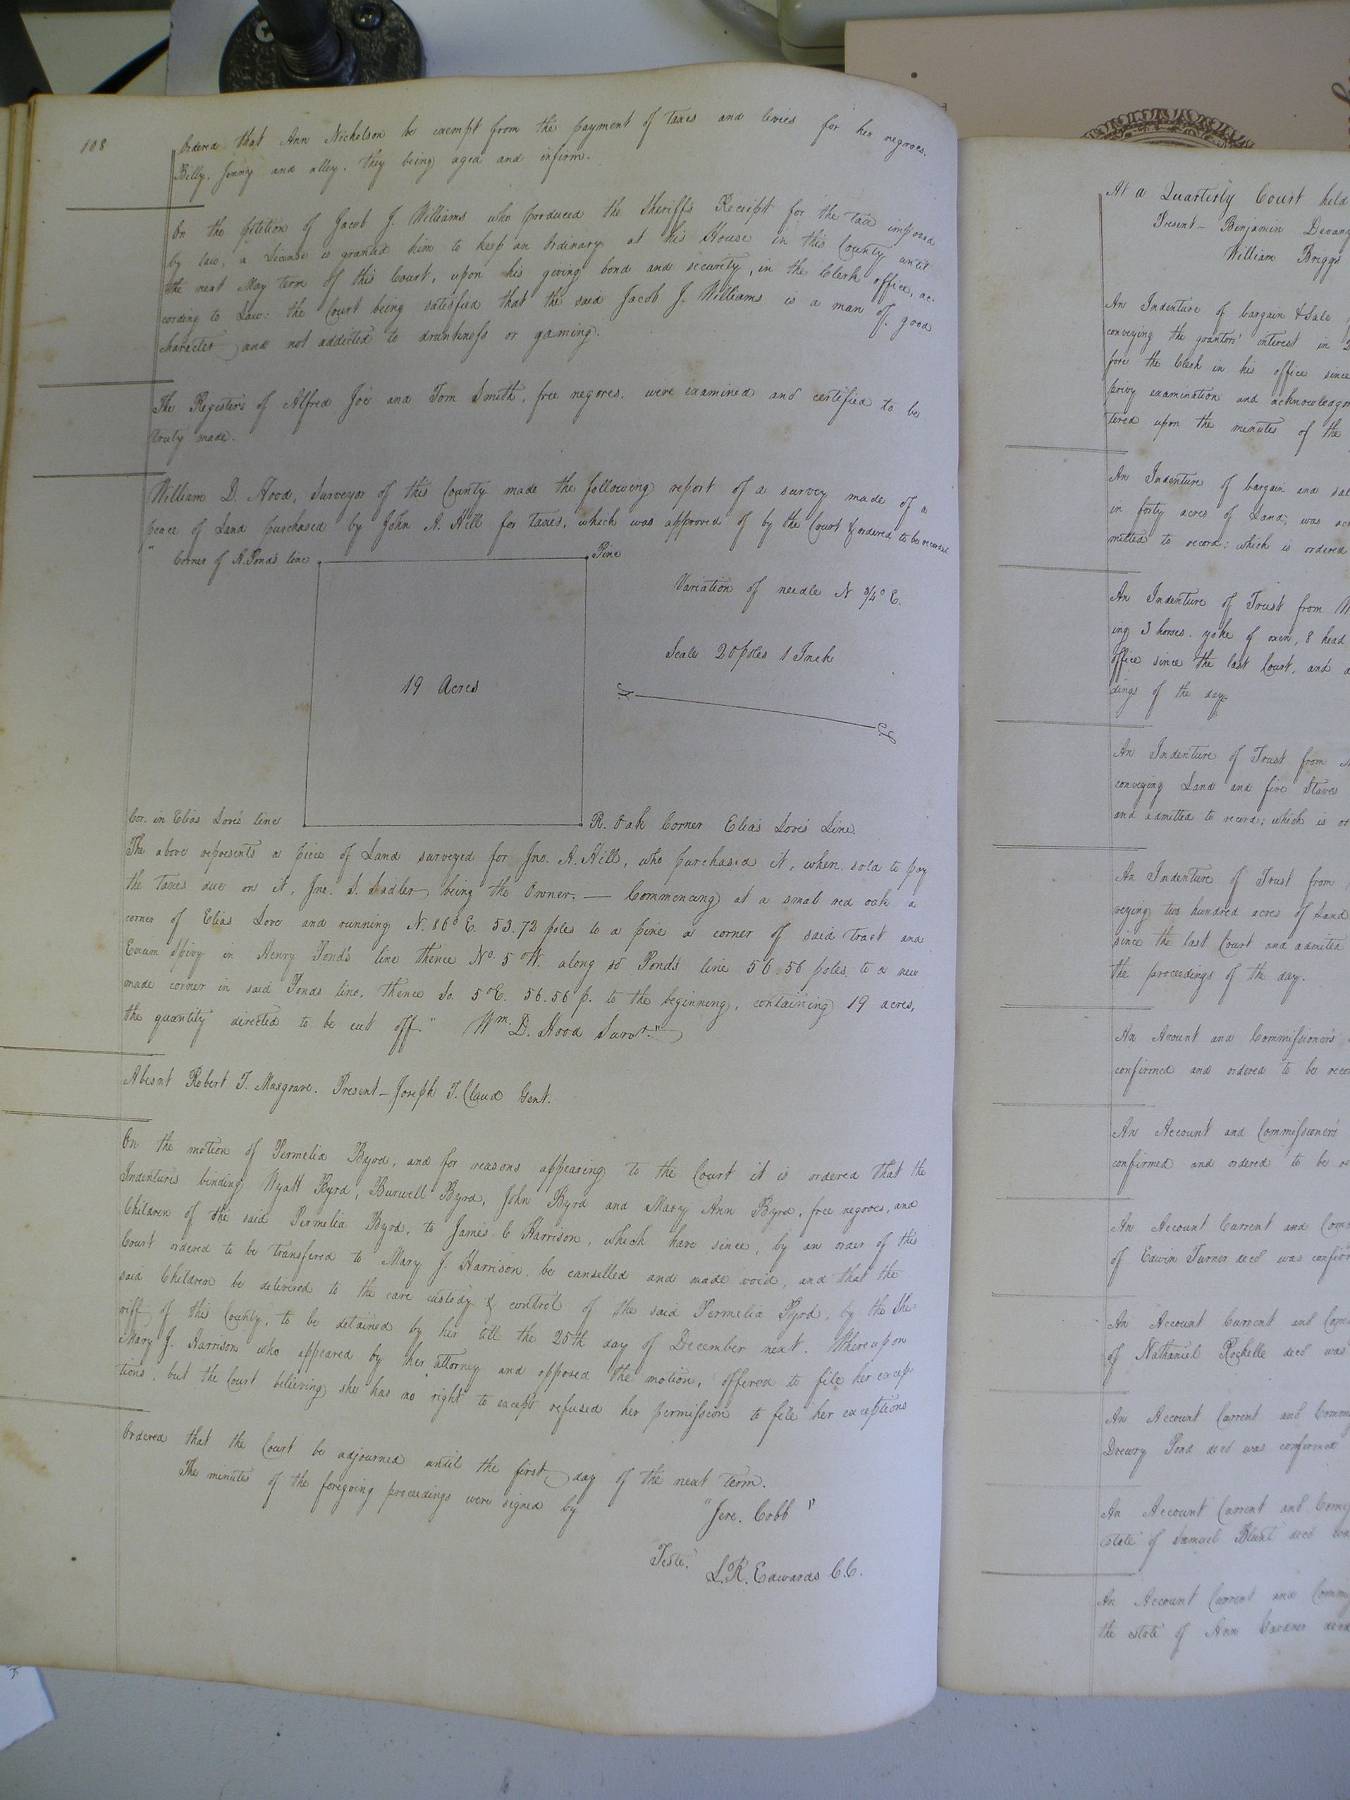 108
Ordered that Ann Nicholson be exempt from the payment of taxes and levies for her negroes.
Billy, Jinny and alley, they being aged and infirm.
On the petition of Jacob J. Williams who produced the Sheriff's Receipt for the tax imposed
by law, a License is granted him to keep an Ordinary at his House in this County until
the next May term of this Court, upon his giving bond and security, in the Clerk office, ac-
cording to Law: the Court being satisfied that the said Jacob J. Williams is a man of good
character and not addicted to drunkenness or gaming.
The Registers of Alfred Joe and Tom Smith, free negroes. were examined and certified to be
truly made.
William D. Hood, Surveyor of this County made the following report of a survey made of a
peace of Land purchased by John A. Hill for taxes, which was approved of by the Court & ordered to be recorded
" Corner of H. Pond's line
Pine
Variation of needle N 3/4° E.
Scale 20 poles 1 Inch
19 Acres
Cor. in Elias Love's line
R. Oak Corner Elias Love's Line
The above represents a piece of Land surveyed for Jno. A. Hill, who purchased it, when sold to pay
the taxes due on it, Jno. S. Sadler being the Owner. — Commencing at a small red oak a
corner of Elias Love and running N. 86° E. 53.72 poles to a pine a corner of said tract and
Spivy in Henry Pond's line thence No. 5° W. along sd Ponds line 56.56 poles to a new
made corner in said Ponds line, thence So. 5° E. 56.56 p. to the beginning, containing 19 acres,
the quantity directed to be cut off." Wm. D. Hood Survr."
Absent Robert T. Musgrave. Present - Joseph T. Claud Gent.
On the motion of Permelia Byrd, and for reasons appearing to the Court it is ordered that the
Indentures binding Wyatt Byrd, Burwell Byrd, John Byrd and Mary Ann Byrd, free negroes, and
Children of the said Permelia Byrd, to James C Harrison, which have since, by an order of this
Court ordered to be transfered to Mary J. Harrison, be cancelled and made void, and that the
said Children be delivered to the care custody & control of the said Permelia Byrd, by the She-
riff of this County, to be detained by her till the 25th day of December next. Whereupon
Mary J. Harrison who appeared by her attorney and opposed the motion, offered to file her excep-
tions, but the Court believing she has no right to except refused her permission to file her exceptions
Ordered that the Court be adjourned until the first day of the next term.
The minutes of the foregoing proceedings were signed by
"Jere. Cobb"
Teste.
L. R. Edwards C.C.
At a Quarterly Court held
Present - Benjamin
William Briggs
An Indenture of bargain & Sale
conveying the grantors' interest in
fore the Clerk in his office since
privy examination and
tered upon the minutes of the
An Indenture of bargain and
in forty acres of Land; was
mitted to record; which is ordered
An Indenture of Trust from
ing 3 horses. yoke of oxen, 8 head
office since the last Court, and
dings of the day.
An Indenture of Trust from
conveying Land and five Slaves
and admitted to record; which is
An Indenture of Trust from
veying two hundred acres of Land
since the last Court and
the proceedings of the day.
An Account and Commissioner's
confirmed and ordered to be
An Account and Commissioner's
confirmed and ordered to be
An Account Current and
of Edwin Turner decd was
An Account Current and
of Nathaniel Rochelle decd was
An Account Current and
Drewry Pond decd was confirmed
An Account Current and
estate of Samuel Blunt decd
An Account Current and
the estate of Ann Gardner